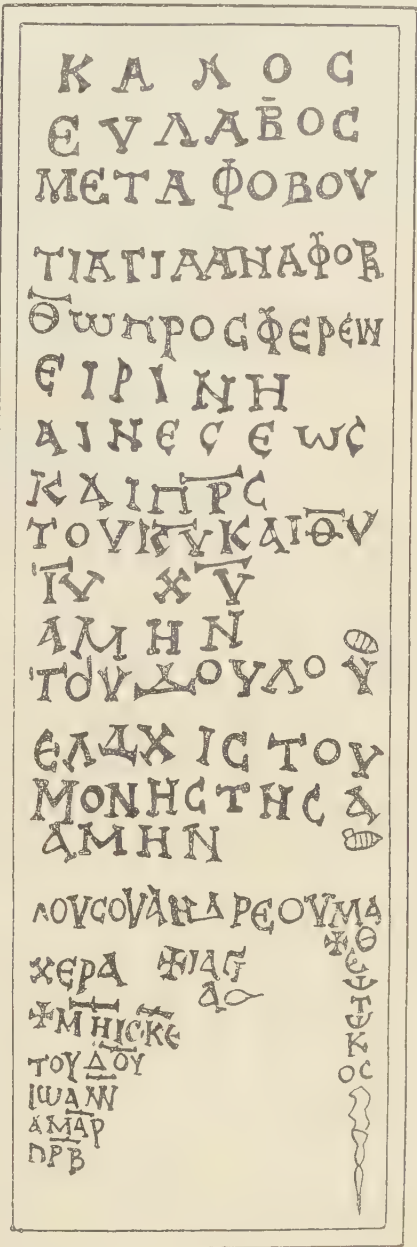 ΚΑΛΟС
ЄVΛΑΒΟС
ΜЄΤΑ ΦΟΒΟV
ΤΙΑΓΙΑΑΝΑΦΟΡ
Θ̅ΩΠΡΟСΦЄΡЄΙΝ
ЄΙΡΙΝΗ
ΑΙΝЄСЄωС
ΚΑΙΠ̅Ρ̅С
ΤΟVΚ̅V̅ΚΑΙΘ̅V
Ι̅V̅ Χ̅V̅
ΑΜΗΝ
ΤΟVΔΟVΛΟV
ЄΛΑΧΙСΤΟV
ΜΟΝΗСΤΗСΑ
ΑΜΗΝ
ΛΟVСΟVΑΝΔΡЄΟVΜΑ
ΧЄΡΑ ✠ΙΑΓ
Α
✠ΜΗΙСΚЄ
ΤΟVΔΟV
ΙωΑΝΝ
ΑΜΑΡ
ΠΡΒ
✠Θ
Є
Ψ
Τ
Ψ
Κ
ΟС